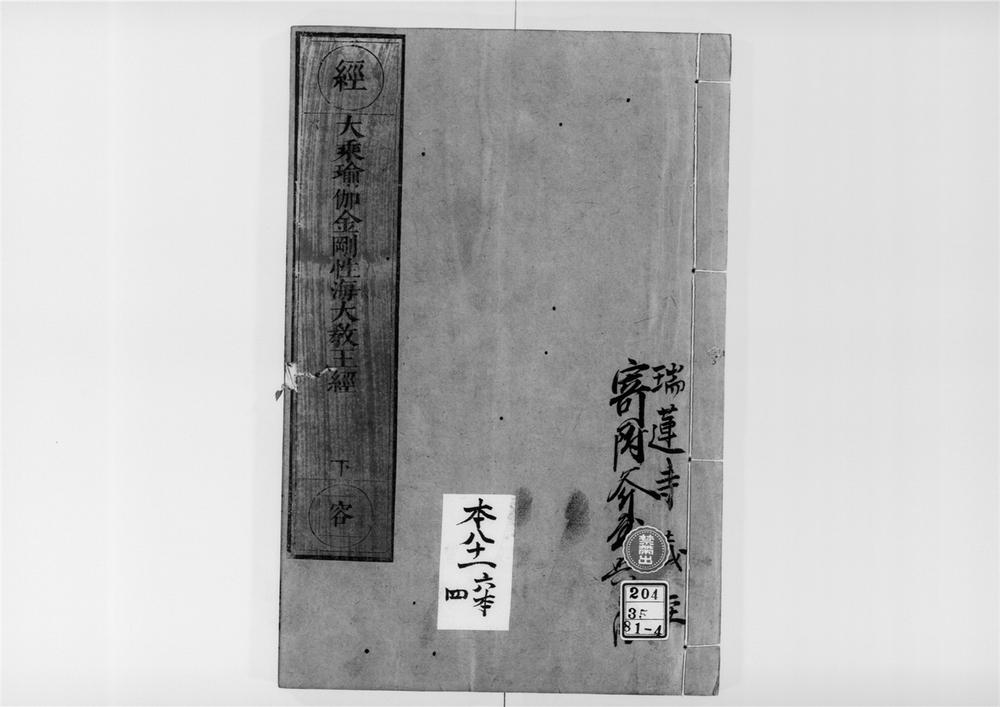 瑞蓮寺
寄附
禁帶出
204
35
81-4
本八十一
六本
四
經
大乘瑜伽金剛性海大敎王經
下
容